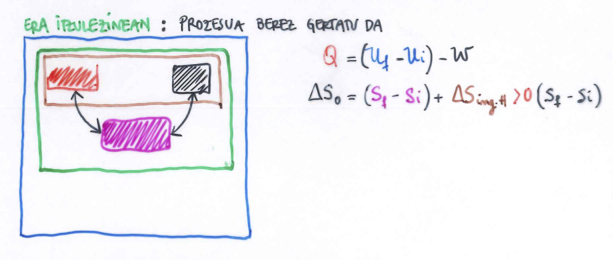 ERA ITZULEZINEAN : PROZESUA BEREZ GERTATU DA
Q = (Uf - Ui) - W
ΔS₀ = (Sf - Si) + ΔSing.H > 0 (Sf - Si)